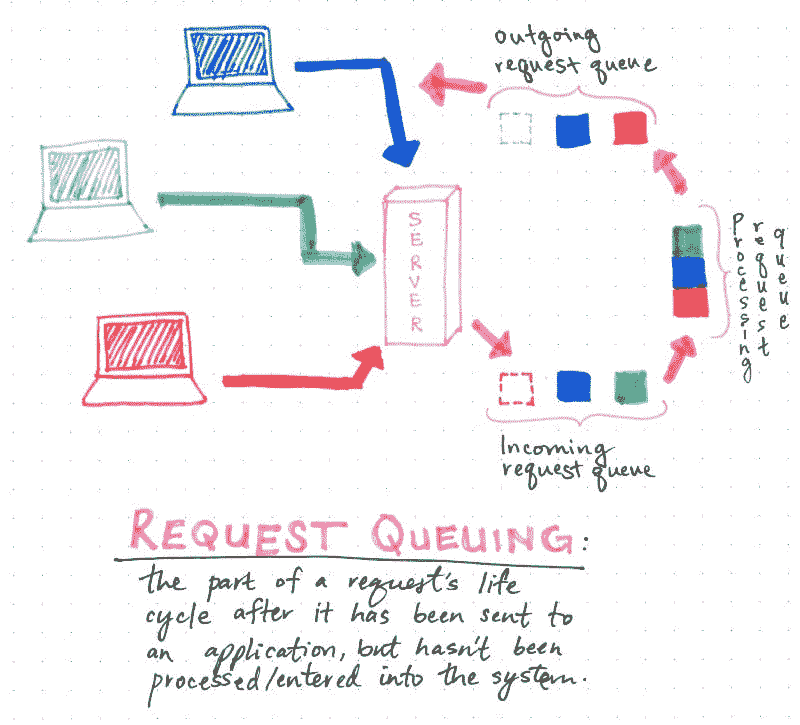 outgoing
request queue
SERVER
Processing
request
queue
Incoming
request queue
REQUEST QUEUING:
the part of a request's life
cycle after it has been sent to
an application, but hasn't been
processed/entered into the system.